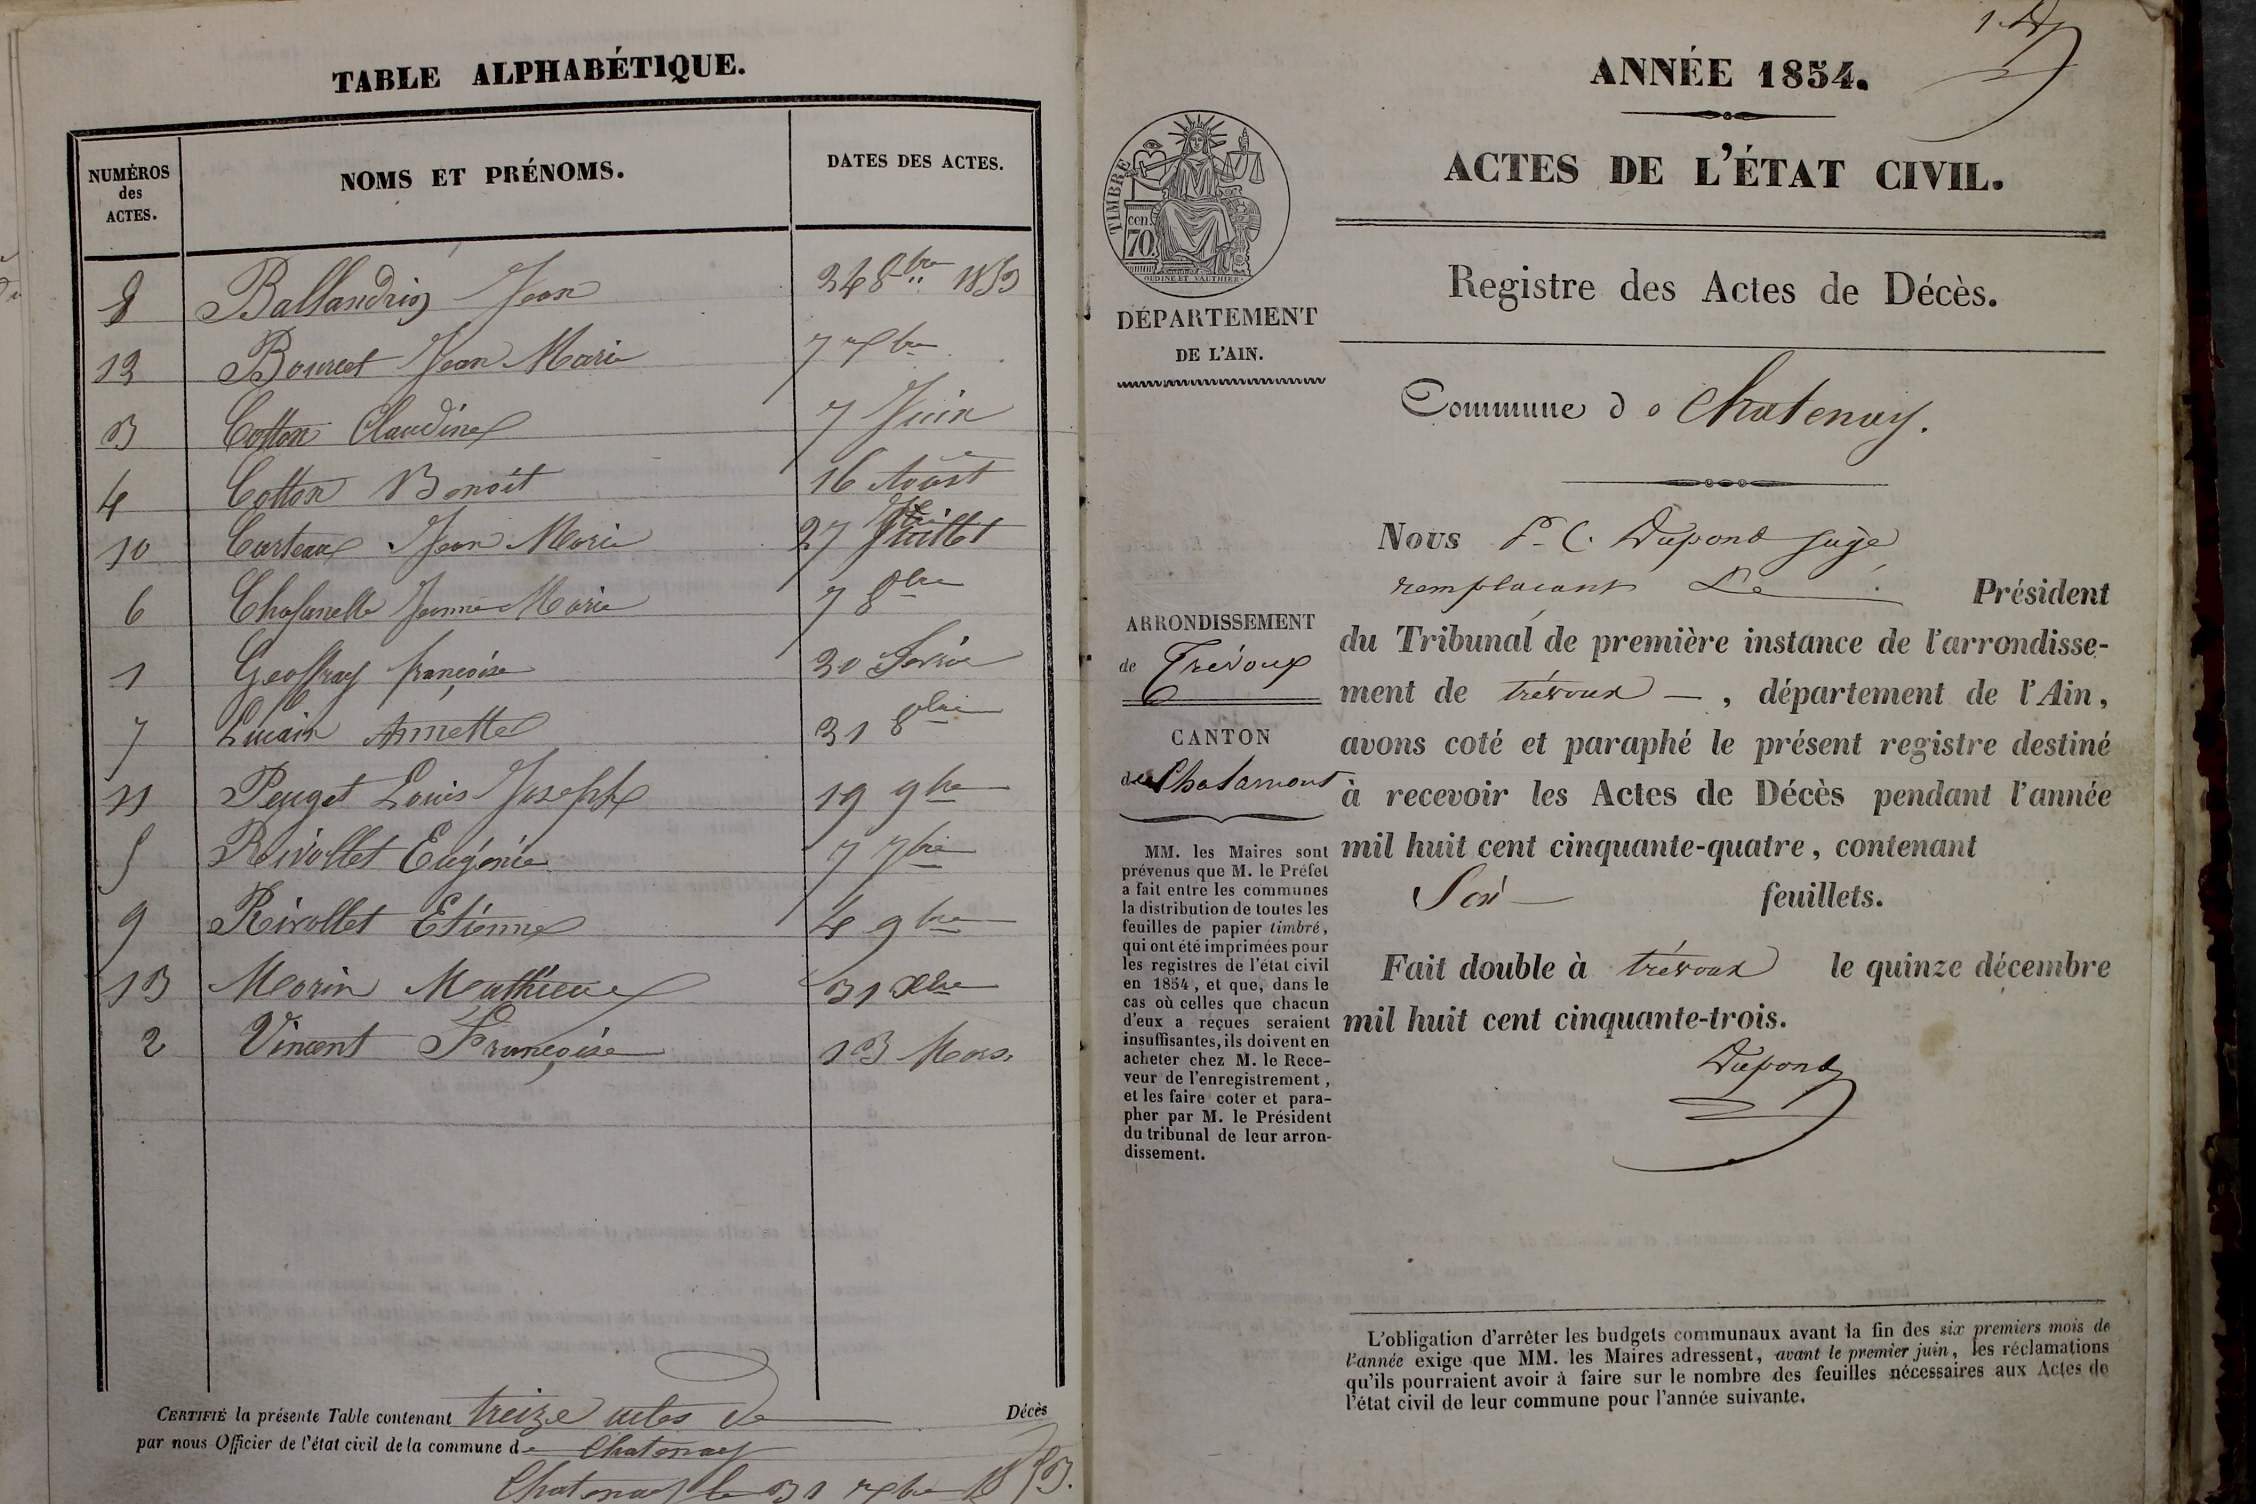 TABLE ALPHABÉTIQUE.
NUMÉROS des ACTES. NOMS ET PRÉNOMS. DATES DES ACTES.
8 Ballandrin Jean 8bre 1853
12 Bourcet Jean Marie 7 xbre
3 Cotton Claudine 7 Juin
4 Cotton Benoit 16 Août
10 Carteaux Jean Marie 27
6 Jeanne Marie 7 8bre
1 Geoffray françoise 30
7 Lucain Annette 31 8bre
11 Peuget Louis Joseph 19 9bre
5 Rivollet Eugénie 7 7bre
9 Rivollet Etienne 4 9bre
13 Morin Mathieu 31 xbre
2 Vincent Françoise 13 Mars
CERTIFIÉ la présente Table contenant treize actes de Décès
par nous Officier de l'état civil de la commune de Chatenay
Chatenay le 31 xbre 1853.
ANNÉE 1854.
ACTES DE L'ÉTAT CIVIL.
Registre des Actes de Décès.
TIMBRE
cen
70
OUDINÉ ET VAUTHIER
DÉPARTEMENT
DE L'AIN.
Commune de Chatenay.
ARRONDISSEMENT
de Trévoux
CANTON
de Chalamont
MM. les Maires sont
prévenus que M. le Préfet
a fait entre les communes
la distribution de toutes les
feuilles de papier timbré,
qui ont été imprimées pour
les registres de l'état civil
en 1854, et que, dans le
cas où celles que chacun
d'eux a reçues seraient
insuffisantes, ils doivent en
acheter chez M. le Rece-
veur de l'enregistrement,
et les faire coter et para-
pher par M. le Président
du tribunal de leur arron-
dissement.
Nous P. C. Dupond juge
remplaçant Le Président
du Tribunal de première instance de l'arrondisse-
ment de trévoux, département de l'Ain,
avons coté et paraphé le présent registre destiné
à recevoir les Actes de Décès pendant l'année
mil huit cent cinquante-quatre, contenant
Six feuillets.
Fait double à trévoux le quinze décembre
mil huit cent cinquante-trois.
Dupond
L'obligation d'arrêter les budgets communaux avant la fin des six premiers mois de
l'année exige que MM. les Maires adressent, avant le premier juin, les réclamations
qu'ils pourraient avoir à faire sur le nombre des feuilles nécessaires aux Actes de
l'état civil de leur commune pour l'année suivante.